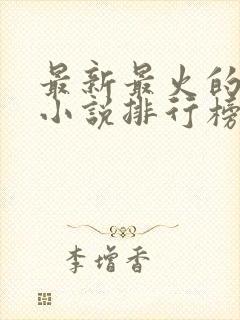 最新最火的
小说排行榜
李增香